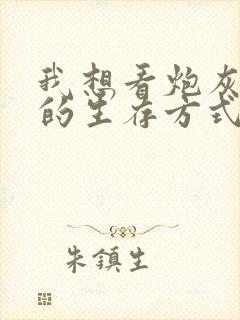 我想看炮灰
的生存方式
朱鎮生